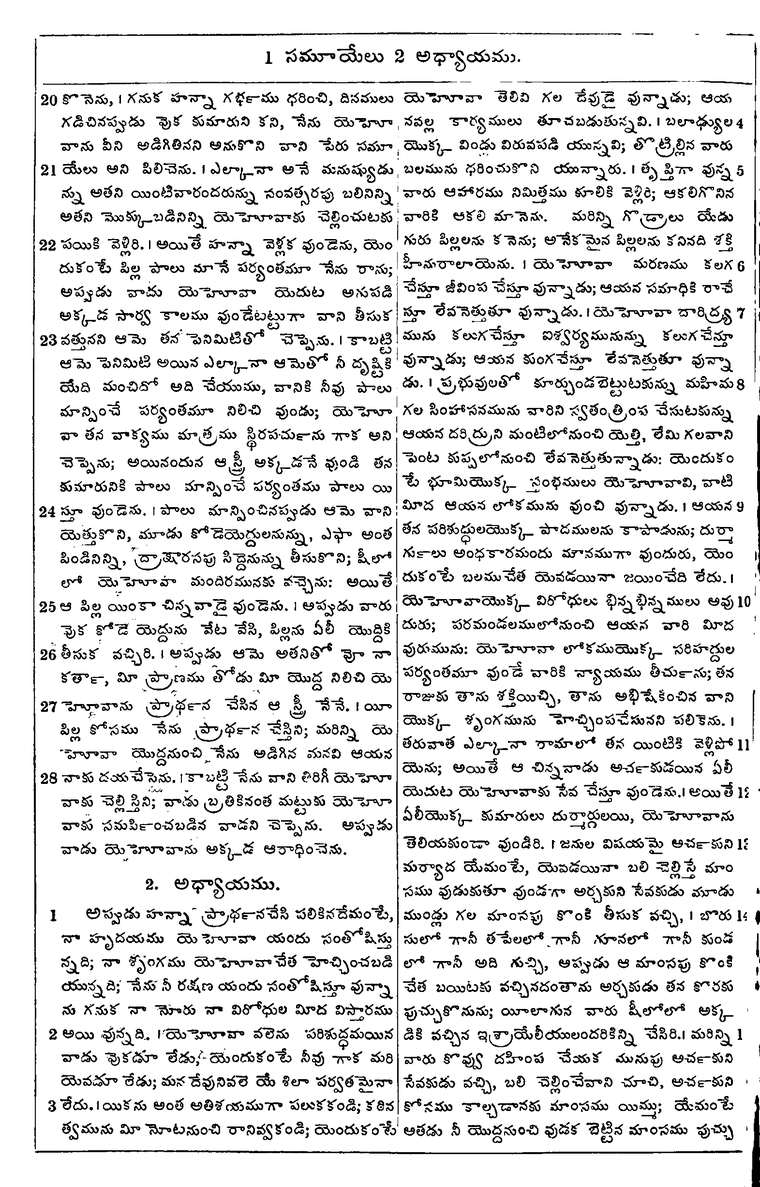 1 సమూయేలు 2 అధ్యాయము.
20 కొనెను, । గనుక హన్నా గర్భము ధరించి, దినములు
గడిచినప్పుడు వుక కుమారుని కని, నేను యెహోూ
వాను వీని అడిగితినని అనుకొని వాని పేరు సమూ
21 యేలు అని పిలిచెను. । ఎల్కానా అనే మనుష్యుడు
న్ను అతని యింటివారందరున్ను సంవత్సరపు బలినిన్ని
అతని మొక్కుబడినిన్ని యెహోవాకు చెల్లించుటకు
22 పయికి వెళ్లిరి. । అయితే హన్నా వెళ్లక వుండెను, యెం
దుకంటే పిల్ల పాలు మానే పర్యంతమూ నేను రాను;
అప్పుడు వాడు యెహోవా యెదుట అగుపడి
అక్కడ సార్వ కాలము వుండేటట్టుగా వాని తీసుక
23 వత్తునని ఆమె తన పెనిమిటితో చెప్పెను. । కాబట్టి
ఆమె పెనిమిటి అయిన ఎల్కానా ఆమెతో నీ దృష్టికి
యేది మంచిదో అది చేయుము, వానికి నీవు పాలు
మాన్పించే పర్యంతమూ నిలిచి వుండు; యెహో
వా తన వాక్యము మాత్రము స్థిరపర్చును గాక అని
చెప్పెను; అయినందున ఆ స్త్రీ అక్కడనే వుండి తన
కుమారునికి పాలు మాన్పించే పర్యంతము పాలు యి
24 స్తూ వుండెను. । పాలు మాన్పించినప్పుడు ఆమె వాని
యెత్తుకొని, మూడు కోడెయెద్దులనున్ను, ఎఫా అంత
పిండినిన్ని, ద్రాక్షారసపు సిద్దెనున్ను తీసుకొని; షీలో
లో యెహోవా మందిరమునకు వచ్చెను: అయితే
25 ఆ పిల్ల యింకా చిన్నవాడై వుండెను. । అప్పుడు వారు
వుక కోడె యెద్దును వేట వేసి, పిల్లను ఏలీ యొద్దికి
26 తీసుక వచ్చిరి. । అప్పుడు ఆమె అతనితో వో నా
కర్తా, మీ ప్రాణము తోడు మీ యొద్ద నిలిచి యె
27 హోవాను ప్రార్థన చేసిన ఆ స్త్రీ నేనే. । యీ
పిల్ల కోసము నేను ప్రార్థన చేస్తిని; మరిన్ని యె
హోవా యొద్దనుంచి నేను అడిగిన మనవి ఆయన
28 నాకు దయచేసెను. । కాబట్టి నేను వాని తిరిగీ యెహో
వాకు చెల్లిస్తిని; వాడు బ్రతికినంత మట్టుకు యెహో
వాకు సమర్పించబడిన వాడని చెప్పెను. అప్పుడు
వాడు యెహోవాను అక్కడ ఆరాధించెను.
2. అధ్యాయము.
1 అప్పుడు హన్నా ప్రార్థనచేసి పలికినదేమంటే,
నా హృదయము యెహోవా యందు సంతోషిస్తు
న్నది; నా శృంగము యెహోవాచేత హెచ్చించబడి
యున్నది; నేను నీ రక్షణ యందు సంతోషిస్తూ వున్నా
ను గనుక నా నోరు నా విరోధుల మీద విస్తారము
2 అయి వున్నది. । యెహోవా వలెను పరిశుద్ధమయిన
వాడు వుకడూ లేడు, యెందుకంటే నీవు గాక మరి
యెవడూ లేడు; మన దేవునివలె యే శిలా పర్వతమైనా
3 లేదు. । యికను అంత అతిశయముగా పలుకకండి; కఠిన
త్వమును మీ నోటనుంచి రానివ్వకండి; యెందుకంటే
యెహోవా తెలివి గల దేవుడై వున్నాడు; ఆయ
నవల్ల కార్యములు తూచబడుతున్నవి. । బలాఢ్యుల 4
యొక్క విండ్లు విరువపడి యున్నవి; తొట్రిల్లిన వారు
బలమును ధరించుకొని యున్నారు. । తృప్తిగా వున్న 5
వారు ఆహారము నిమిత్తము కూలికి వెళ్లిరి; ఆకలిగొనిన
వారికి ఆకలి మానెను. మరిన్ని గొడ్రాలు యేడు
గురు పిల్లలను కనెను; అనేకమైన పిల్లలను కనినది శక్తి
హీనురాలాయెను. । యెహోవా మరణము కలగ 6
చేస్తూ జీవింప చేస్తూ వున్నాడు; ఆయన సమాధికి రాచే
స్తూ లేవనెత్తుతూ వున్నాడు. । యెహోవా దారిద్ర్య 7
మును కలుగచేస్తూ ఐశ్వర్యమునున్ను కలుగచేస్తూ
వున్నాడు; ఆయన కుంగచేస్తూ లేవనెత్తుతూ వున్నా
డు. । ప్రభువులతో కూర్చుండబెట్టుటకున్ను మహిమ 8
గల సింహాసనమును వారిని స్వతంత్రింప చేసుటకున్ను
ఆయన దరిద్రుని మంటిలోనుంచి యెత్తి, లేమి గలవాని
పెంట కుప్పలోనుంచి లేవనెత్తుతున్నాడు: యెందుకం
టే భూమియొక్క స్తంభములు యెహోవావి, వాటి
మీద ఆయన లోకమును వుంచి వున్నాడు. । ఆయన 9
తన పరిశుద్ధులయొక్క పాదములను కాపాడును; దుర్మా
ర్గులు అంధకారమందు మౌనముగా వుందురు, యెం
దుకంటే బలముచేత యెవడయినా జయించేది లేదు. ।
యెహోవాయొక్క విరోధులు భిన్నభిన్నములు అవు 10
దురు; పరమండలములోనుంచి ఆయన వారి మీద
వురుమును: యెహోవా లోకముయొక్క సరిహద్దుల
పర్యంతమూ వుండే వారికి న్యాయము తీర్చును; తన
రాజుకు తాను శక్తియిచ్చి, తాను అభిషేకించిన వాని
యొక్క శృంగమును హెచ్చింపచేసునని పలికెను. ।
తరువాత ఎల్కానా రామాలో తన యింటికి వెళ్లిపో 11
యెను; అయితే ఆ చిన్నవాడు అర్చకుడయిన ఏలీ
యెదుట యెహోవాకు సేవ చేస్తూ వుండెను. । అయితే 12
ఏలీయొక్క కుమారులు దుర్మార్గులయి, యెహోవాను
తెలియకుండా వుండిరి. । జనుల విషయమై అర్చకుని 13
మర్యాద యేమంటే, యెవడయినా బలి చెల్లిస్తే మాం
సము వుడుకుతూ వుండగా అర్చకుని సేవకుడు మూడు
ముండ్లు గల మాంసపు కొంకి తీసుక వచ్చి, । బొరు 14
సులో గానీ తపేలలో గానీ గూనలో గానీ కుండ
లో గానీ అది గుచ్చి, అప్పుడు ఆ మాంసపు కొంకి
చేత బయిటకు వచ్చినదంతాను అర్చకుడు తన కొరకు
పుచ్చుకొనును; యీలాగున వారు షీలోలో అక్క
డికి వచ్చిన ఇశ్రాయేలీయులందరికిన్ని చేసిరి. । మరిన్ని 1
వారు కొవ్వు దహింప చేయక మునుపు అర్చకుని
సేవకుడు వచ్చి, బలి చెల్లించేవాని చూచి, అర్చకుని
కోసము కాల్చడానకు మాంసము యిమ్ము; యేమంటే
అతడు నీ యొద్దనుంచి వుడక బెట్టిన మాంసము పుచ్చు